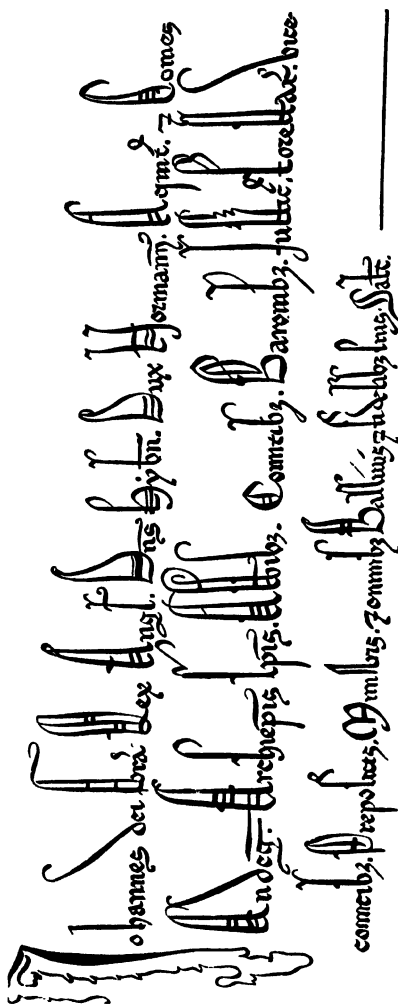 Johannes dei gra. Rex Angl. Dns Hybn. Dux Normann. Aquit. ⁊ Comes
Andeg. Archiepis Epis. Abbibꝫ. Comitibꝫ. Baronibꝫ. Justic. Forestar. Vice
comitibꝫ. Prepositis. Ministris. ⁊ omnibꝫ Ballivis ⁊ fidelibꝫ suis. Salt.